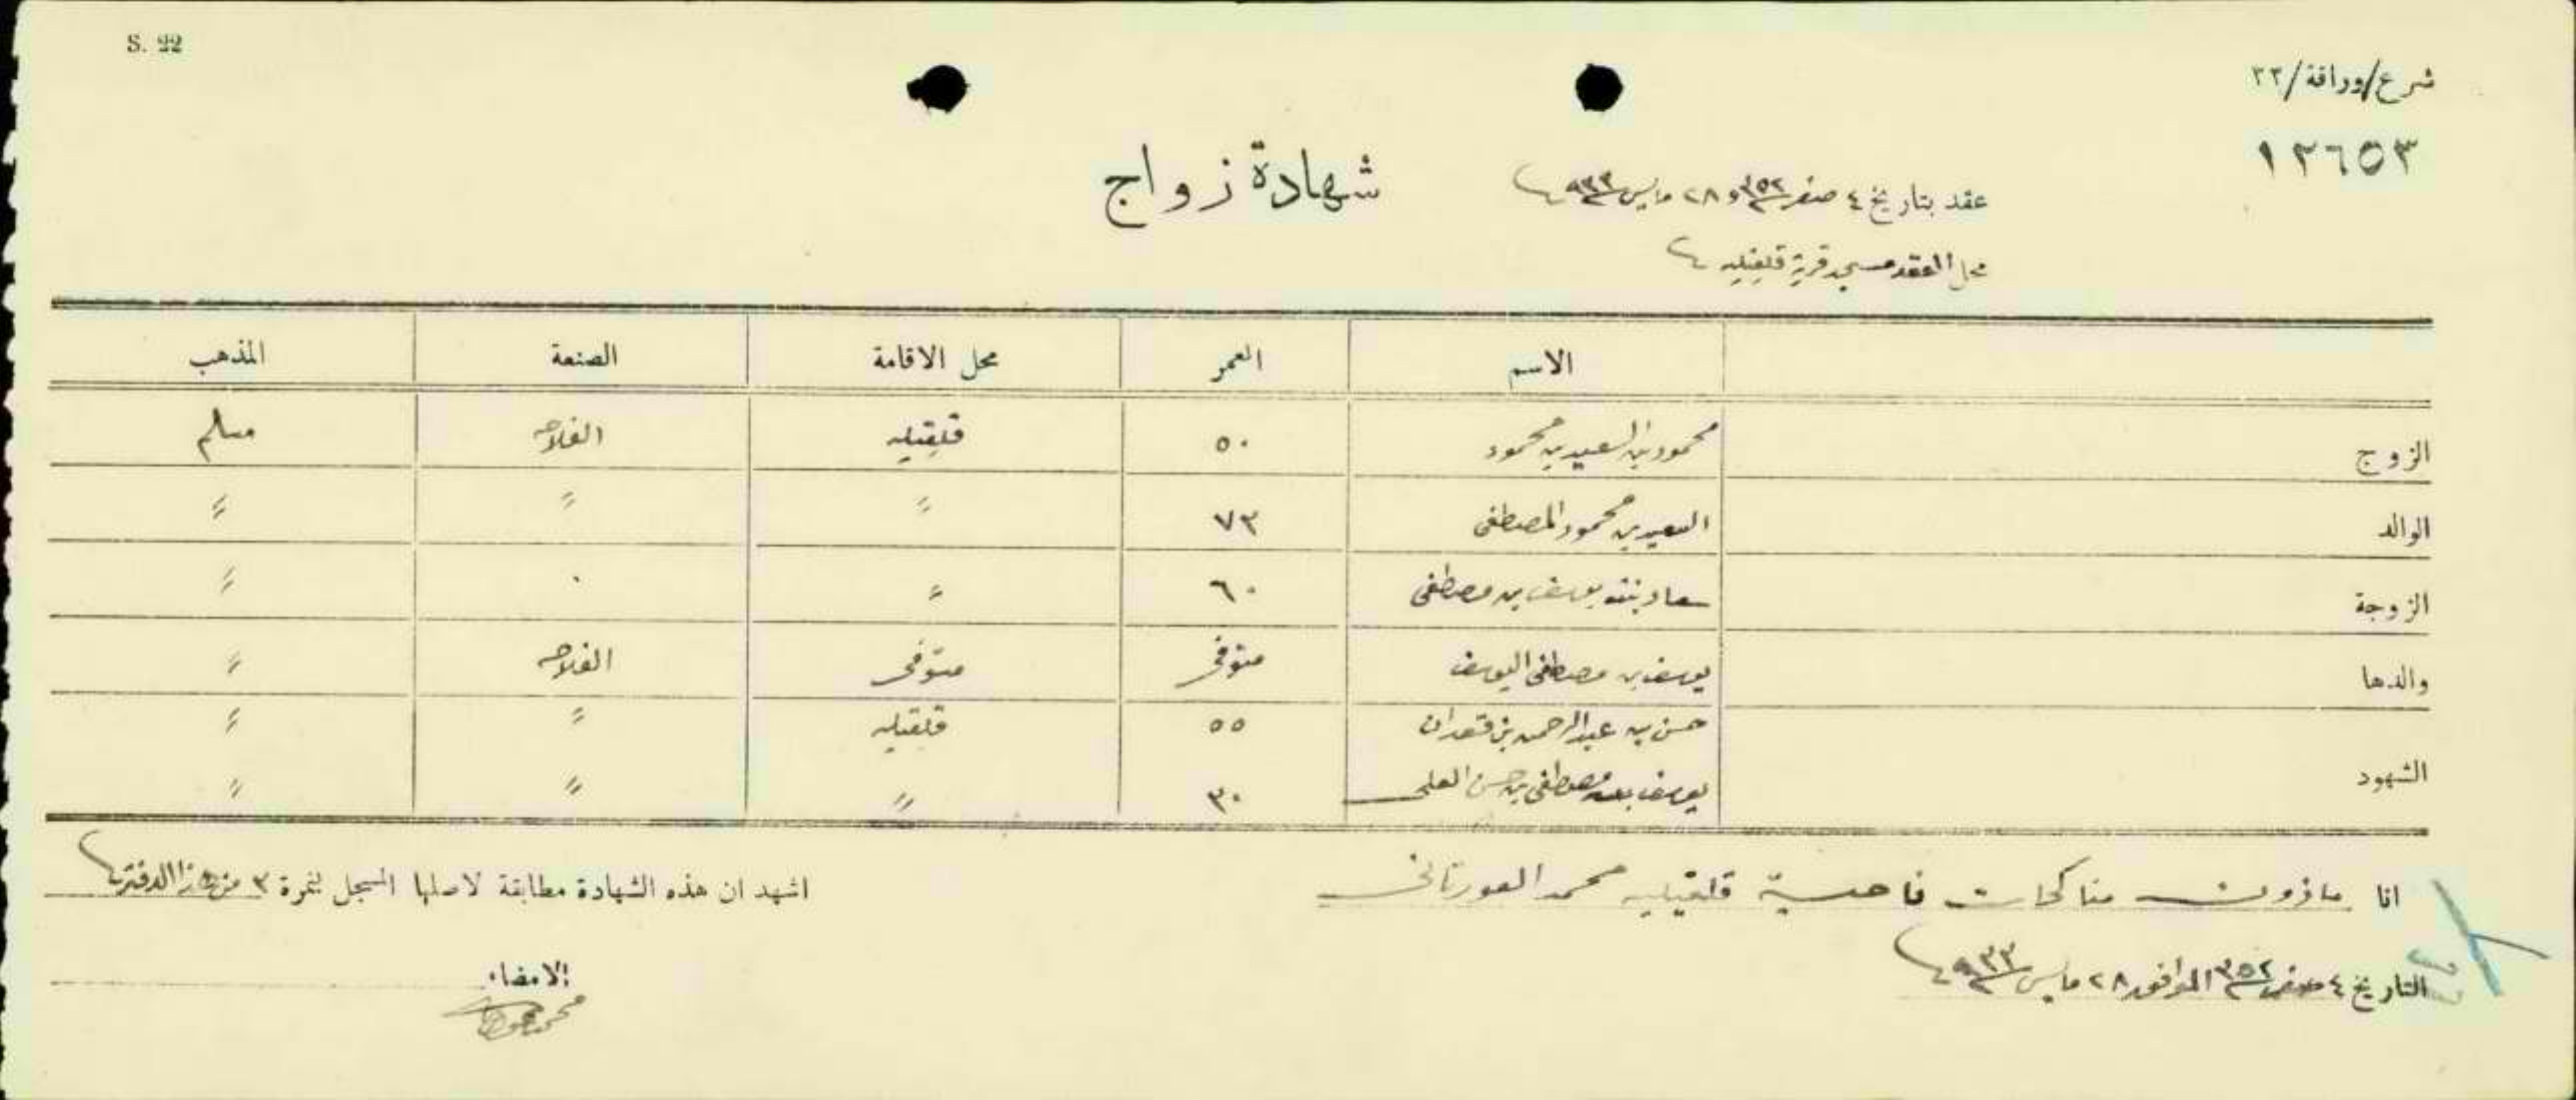 S. 22
شرع/وراقة/٢٢
١٢٦٥٣
شهادة زواج
عقد بتاريخ ٤ صفر ٣٥٢ و ٢٨ مايس ٩٣٣
محل العقد مسجد قرية قلقيليه
الاسم العمر محل الاقامة الصنعة المذهب
الزوج محمود بن السعيد بن محمود ٥٠ قلقيليه الفلاحه مسلم
الوالد السعيد بن محمود المصطفى ٧٣ " " "
الزوجة سعاد بنت يوسف بن مصطفى ٦٠ " ٠ "
والدها يوسف بن مصطفى اليوسف متوفى متوفى الفلاحه "
الشهود حسن بن عبد الرحمن بن ٥٥ قلقيليه " "
يوسف بن مصطفى بن حسن العلي ٣٠ " " "
انا ماذون مناكحات قلقيليه محمد
اشهد ان هذه الشهادة مطابقة لاصلها المسجل بنمرة ٣ من هذا الدفتر
التاريخ ٤ صفر ٣٥٢ الموافق ٢٨ مايس ٩٣٣
الامضاء